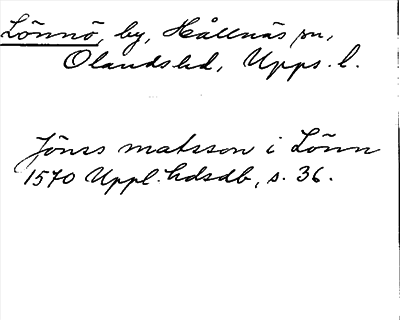 Lönnö, by, Hållnäs sn,
Olandshd, Upps. l.
Jönss matsson i Lönn
1570 Uppl. hdsdb, s. 36.